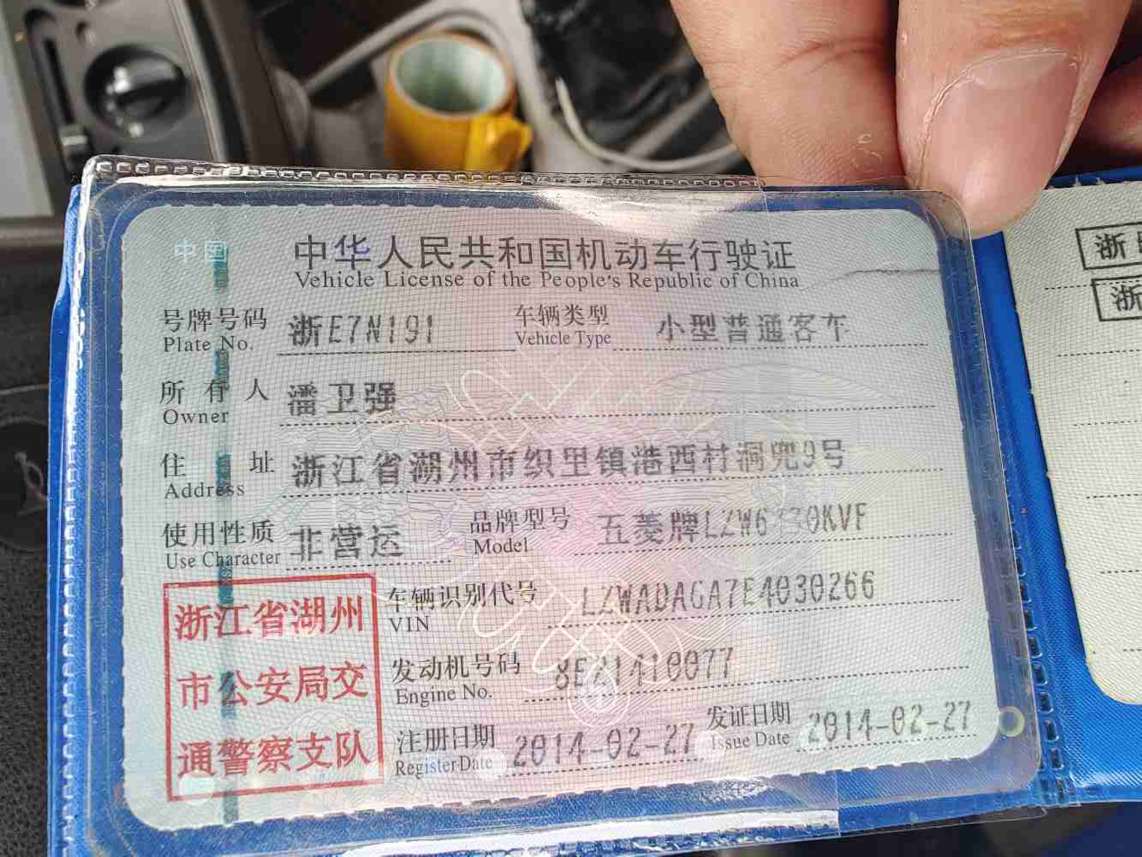 中国
中华人民共和国机动车行驶证
Vehicle License of the People's Republic of China
号牌号码 浙E7N191 车辆类型 小型普通客车
Plate No. Vehicle Type
所有人 潘卫强
Owner
住址 浙江省湖州市织里镇港西村洞兜9号
Address
使用性质 非营运 品牌型号 五菱牌
Use Character Model
车辆识别代号 LZWADAGA7E4030266
VIN
发动机号码 8E21410077
Engine No.
注册日期 2014-02-27 发证日期 2014-02-27
Register Date Issue Date
浙江省湖州
市公安局交
通警察支队
浙
浙